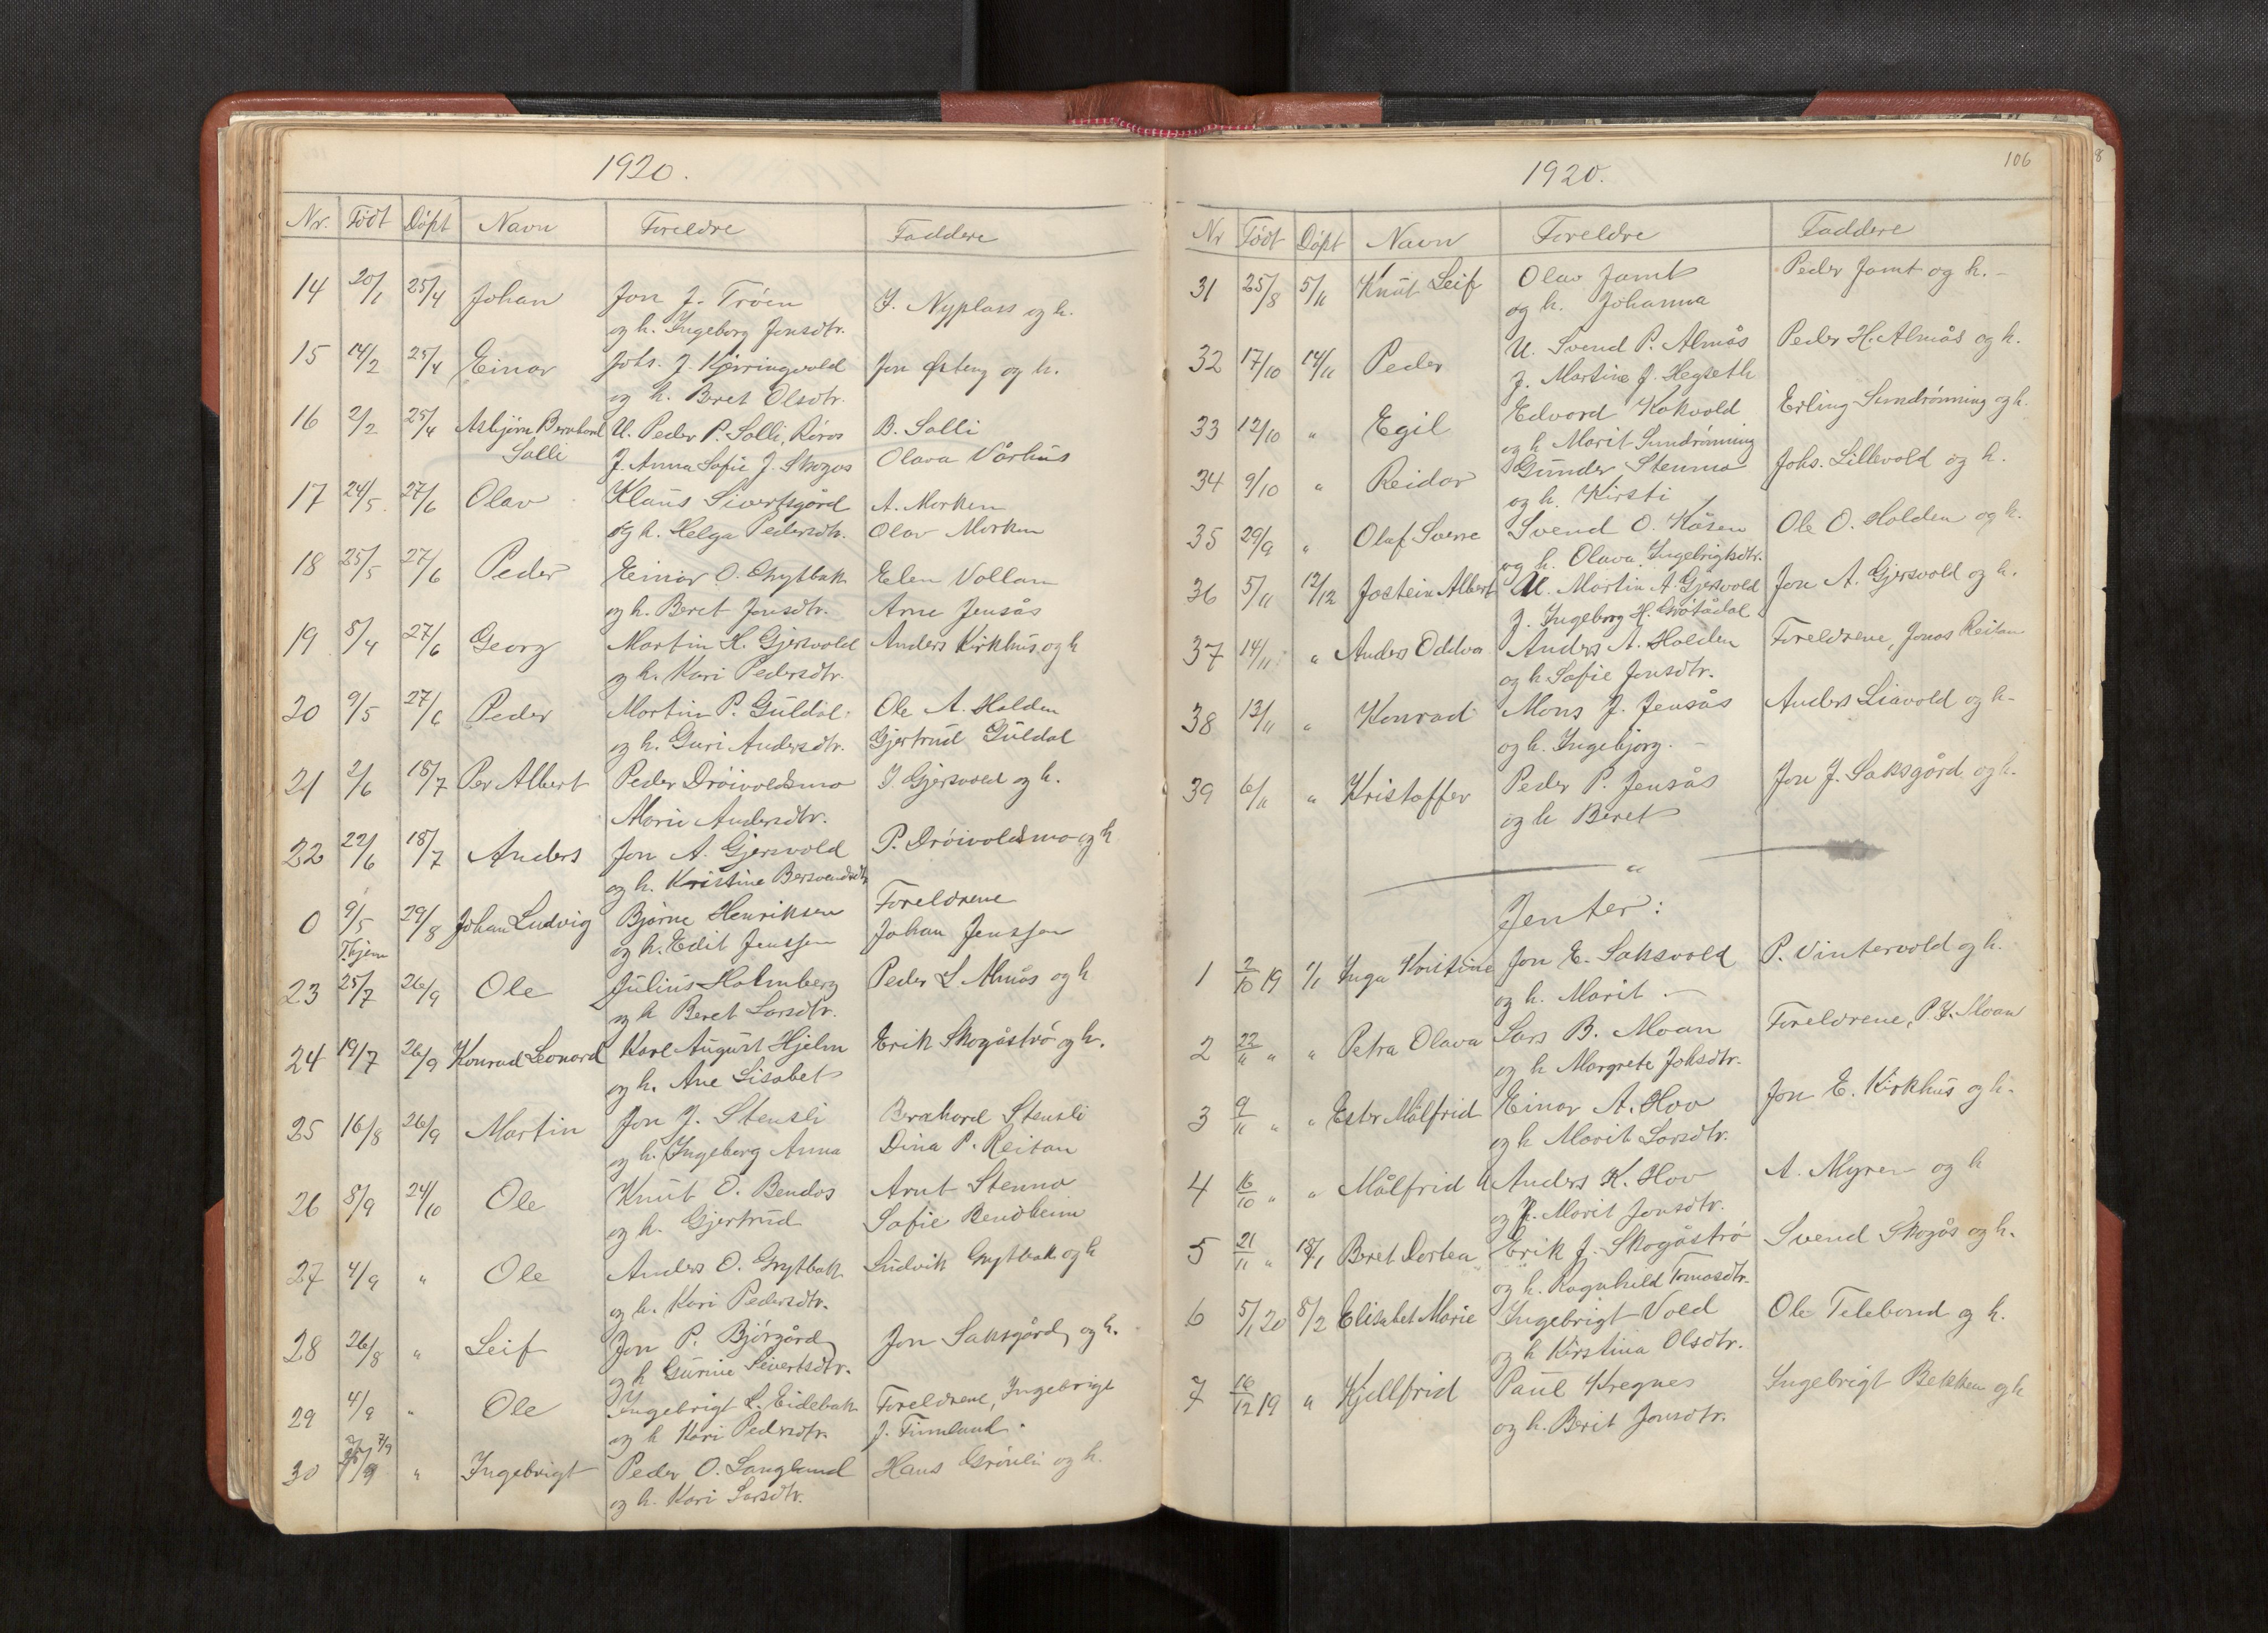 1920.
Nr. Født Døpt Navn Foreldre Faddere
14 20/1 25/4 Johan Jon J. Trøen J. Nyplass og h.
og h. Ingeborg Jonsdtr.
15 14/2 25/4 Einar Johs. J. Kjerringvold Jon Østeng og h.
og h. Beret Olsdtr.
16 2/2 25/4 Asbjørn Bernhard U. Peder P. Solli, Røros B. Solli
Solli J. Anna Sofie J. Skogås Olava Vårhus
17 24/5 27/6 Olav Klaus Sivertsgård A. Morken
og h. Helga Pedersdtr. Olav Morken
18 25/5 27/6 Peder Einar O. Grytbak Elen Vollan
og h. Beret Jonsdtr. Arne Jensås
19 8/4 27/6 Georg Martin H. Gjersvold Anders Kirkhus og h
og h. Kari Pedersdtr.
20 9/5 27/6 Peder Martin P. Guldal Ole A. Holden
og h. Guri Andersdtr. Gjertrud Guldal
21 2/6 18/7 Per Albert Peder Drøivoldsmo J. Gjersvold og h.
Marie Andersdtr.
22 22/6 18/7 Anders Jon A. Gjersvold P. Drøivoldsmo og h
og h. Kristine Bersvendsdtr
0 9/5 29/8 Johan Ludvig Bjarne Henriksen Foreldrene
Thjem og h. Edit Jenssen Johan Jenssen
23 25/7 26/9 Ole Julius Holmberg Peder L. Almås og h
og h Beret Larsdtr.
24 19/7 26/9 Konrad Leonard Karl August Hjelm Erik Skogåstrø og h.
og h. Ane Lisabet
25 16/8 26/9 Martin Jon J. Stensli Bernhard Stensli
og h. Ingeborg Anna Dina P. Reitan
26 8/9 24/10 Ole Knut O. Bendos Arnt Stenmo
og h. Gjertrud Sofie Bendheim
27 4/9 " Ole Anders O. Grytbak Ludvik Grytbak og h
og h. Kari Pedersdtr.
28 26/8 " Leif Jon P. Bjørgård Jon Saksgård og h.
og h Gurine Sivertsdtr.
29 4/9 " Ole Ingebrigt L. Eidebak Foreldrene, Ingebrigt
og h Kari Pedersdtr. J. Finnland.
30 7/9 " Ingebrigt Peder O. Langland Hans Grønli og h.
og h. Kari Larsdtr.
106
1920.
Nr Født Døpt Navn Foreldre Faddere
31 25/8 5/11 Knut Leif Olav Jamt Peder Jamt og h.
og h. Johanna
32 17/10 14/11 Peder U. Svend P. Almås Peder H. Almås og h.
J. Martine J. Hegseth
33 12/10 " Egil Edvard Kokvold Erling Sundrønning og h.
og h Marit Sundrønning
34 9/10 " Reidar Gunder Stenmo Johs. Lillevold og h.
og h. Kirsti
35 29/9 " Olaf Sverre Svend O. Kåsen Ole O. Holden og h.
og h. Olava Ingebrigtsdtr.
36 5/11 12/12 Jostein Albert U. Martin A. Gjersvold Jon A. Gjersvold og h.
J. Ingeborg H. Grøtådal
37 14/11 " Anders Oddvar Anders A. Holden Foreldrene, Jonas Reitan
og h. Sofie Jonsdtr.
38 13/11 " Konrad Mons J. Jensås Anders Liavold og h.
og h. Ingebjørg.
39 6/11 " Kristoffer Peder P. Jensås Jon J. Saksgård og h.
og h Beret
"
Jenter:
1 2/10 19 1/1 Inga Kristine Jon E. Saksvold P. Vintervold og h.
og h. Marit
2 22/11 " " Petra Olava Lars B. Moan Foreldrene, P. J. Moan
og h Margrete Johsdtr.
3 9/11 " " Ester Målfrid Einar A. Hov Jon E. Kirkhus og h.
og h Marit Larsdtr.
4 16/10 " " Målfrid Anders K. Hov A. Myren og h
og h. Marit Jonsdtr.
5 21/11 " 18/1 Beret Dortea Erik J. Skogåstrø Svend Skogås og h.
og h. Ragnhild Tomasdtr.
6 5/1 20 8/2 Elisabet Marie Ingebrigt Vold Ole Telebond og h.
og h Kirstina Olsdtr.
7 16/12 19 " Kjellfrid Paul Kregnes Ingebrigt Bekken og h
og h. Berit Jonsdtr.